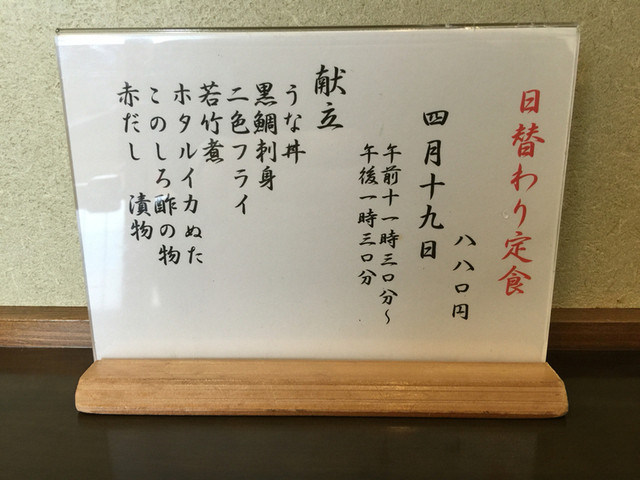 日替わり定食
八八〇円
四月十九日
午前十一時三〇分～
午後一時三〇分
献立
うな丼
黒鯛刺身
二色フライ
若竹煮
ホタルイカぬた
このしろ酢の物
赤だし 漬物